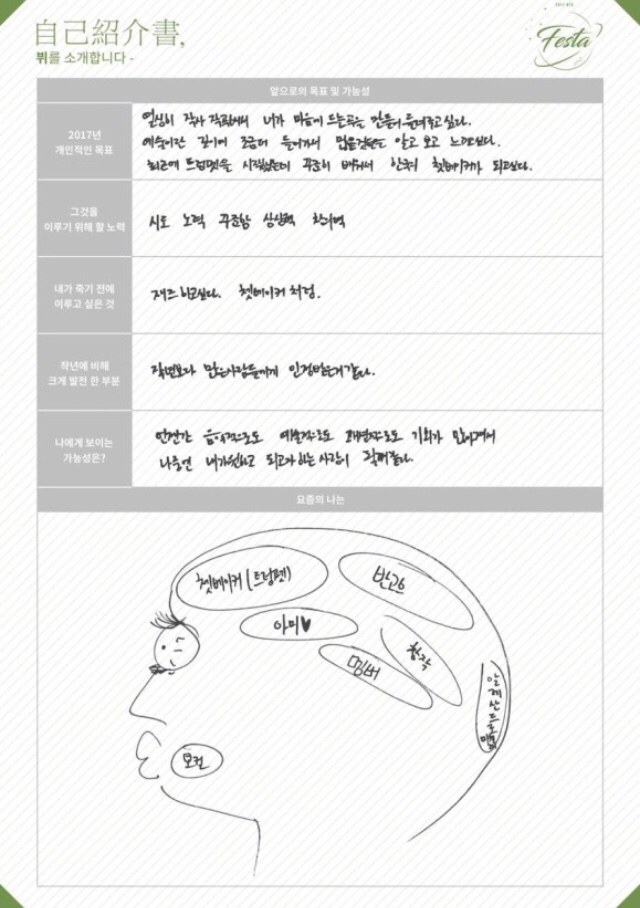 Festa
自己紹介書,
뷔를 소개합니다 -
앞으로의 목표 및 가능성
2017년
개인적인 목표
열심히 작사 작곡해서 내가 마음에 드는곡을 만들어 들려주고싶다.
예술이란 깊이에 조금더 들어가서 많은걸 알고 보고 느끼고싶다.
최근에 트럼펫을 시작했는데 꾸준히 배워서 한국의 쳇베이커가 되고싶다.
그것을
이루기 위해 할 노력
시도 노력 꾸준함 상상력 창의력
내가 죽기 전에
이루고 싶은 것
재즈하고싶다. 쳇베이커처럼.
작년에 비해
크게 발전 한 부분
작년보다 많은사람들에게 인정받은거같다.
나에게 보이는
가능성은?
언젠간 음악적으로도 예술적으로도 패션적으로도 기회가 많이생겨서
나중엔 내가원하고 되고자하는사람이 될꺼같다.
요즘의 나는
쳇베이커 (트럼펫)
반고흐
아미♥
창작
멤버
보컬